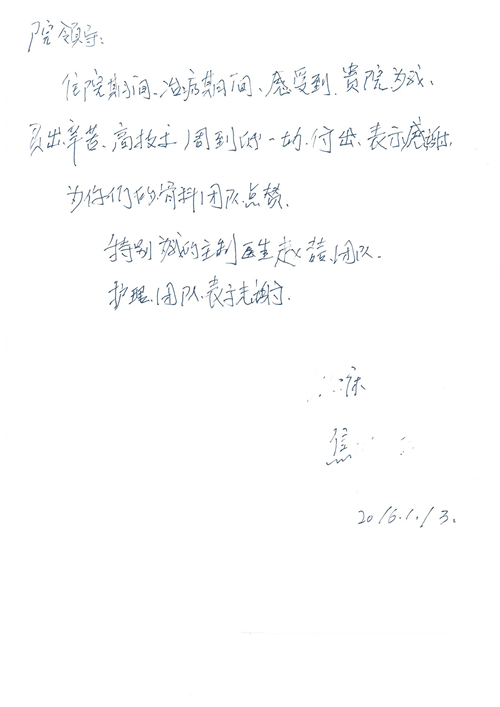 院领导:
住院期间、治病期间、感受到、贵院为我、
付出辛苦、高技术、周到的一切、付出、表示感谢,
为你们的骨科团队点赞.
特别 我的主刀医生赵 团队.
护理、团队、表示 谢.
床
焦
2016.1.13.